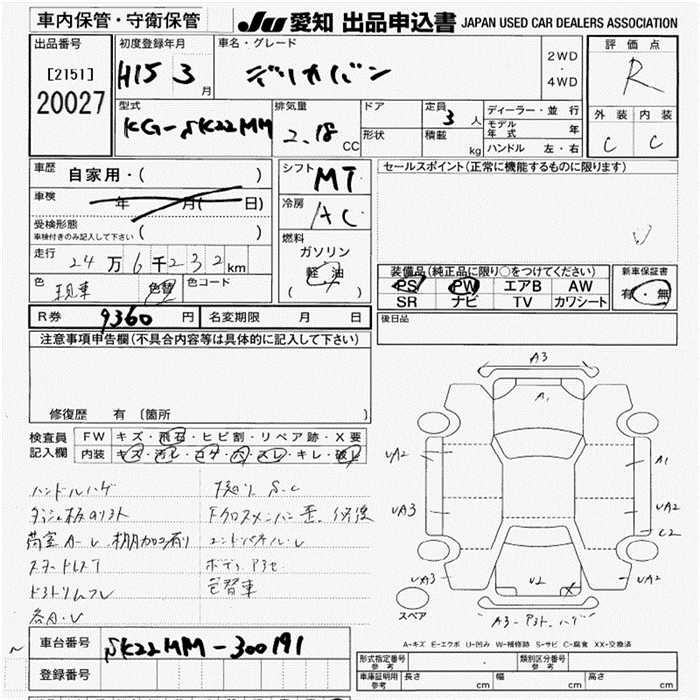 車内保管・守衛保管
JU 愛知 出品申込書 JAPAN USED CAR DEALERS ASSOCIATION
出品番号
[2151]
20027
初度登録年月
H15 3 月
車名・グレード
デリカバン
2WD
・
4WD
評価点
R
外装 内装
C C
型式
KG-SK22MM
排気量
2.18 CC
ドア
形状
定員
3 人
積載
kg
ディーラー・並行
モデル年式 年
ハンドル 左・右
車歴
自家用・( )
車検
年 月( 日)
受検形態
車検付きのみ記入して下さい ( )
走行
24万6千232km
色
現車
色替
色コード
シフト
MT
冷房
AC
燃料
ガソリン
軽油
( )
セールスポイント(正常に機能するものに限ります)
装備品(純正品に限り○をつけてください)
PS PW エアB AW
SR ナビ TV カワシート
新車保証書
有・無
後日品
R券 9360 円 名変期限 月 日
注意事項申告欄(不具合内容等は具体的に記入して下さい)
修復歴 有 〔箇所 〕
検査員
記入欄
FW キズ・飛石・ヒビ割・リペア跡・X要
内装 キズ・汚レ・コゲ・穴・スレ・キレ・破レ
ハンドルハゲ
下廻り S.C
ダッシュ板のリフト
Fクロスメンバー歪、修復
荷室A-U
エンドパネル-U
ボディ
色替車
各A・U
A3
A1
UA2
A1
UA3
UA2
C2
UA3
U2
X
UA2
スペア
A-キズ E-エクボ U-凹み W-補修跡 S-サビ C-腐食 XX-交換済
車台番号 SK22MM-300191
登録番号
形式指定番号
参考
類別区分番号
参考
車庫証明用
参考
長さ cm 幅 cm 高さ cm